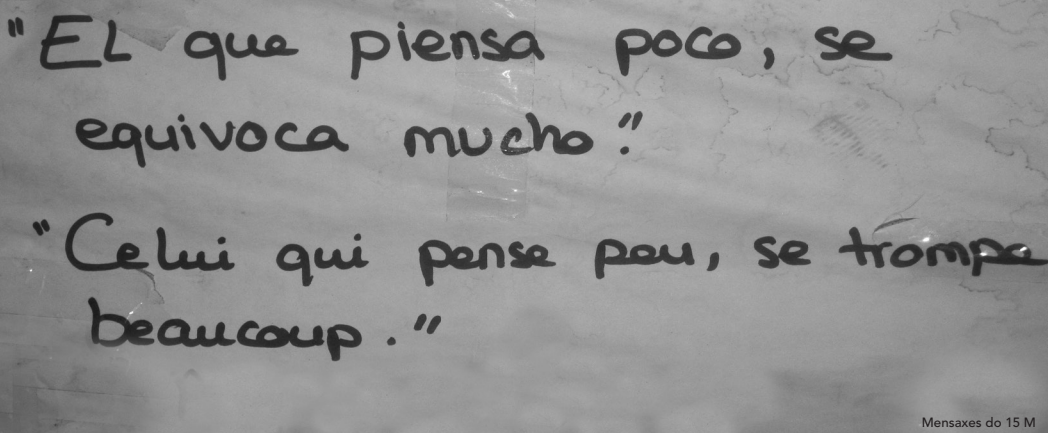 "EL que piensa poco, se
equivoca mucho."
"Celui qui pense peu, se trompe
beaucoup."
Mensaxes do 15 M